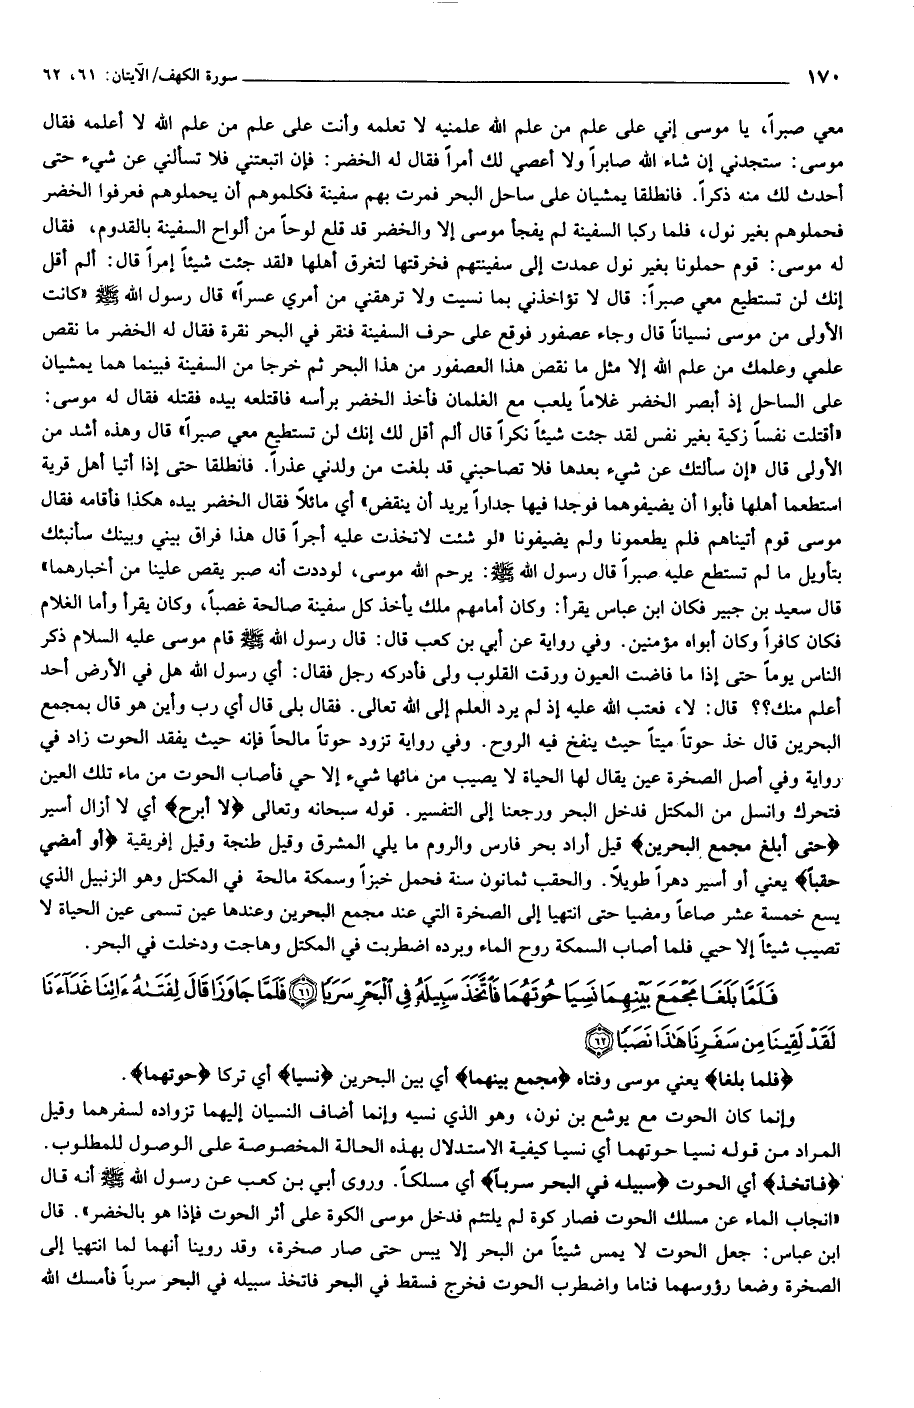 ١٧٠ سورة الكهف/ الآيتان: ٦١، ٦٢
معي صبراً، يا موسى إني على علم من علم الله علمنيه لا تعلمه وأنت على علم من علم الله لا أعلمه فقال
موسى: ستجدني إن شاء الله صابراً ولا أعصي لك أمراً فقال له الخضر: فإن اتبعتني فلا تسألني عن شيء حتى
أحدث لك منه ذكراً. فانطلقا يمشيان على ساحل البحر فمرت بهم سفينة فكلموهم أن يحملوهم فعرفوا الخضر
فحملوهم بغير نول، فلما ركبا السفينة لم يفجأ موسى إلا والخضر قد قلع لوحاً من ألواح السفينة بالقدوم، فقال
له موسى: قوم حملونا بغير نول عمدت إلى سفينتهم فخرقتها لتغرق أهلها «لقد جئت شيئاً إمراً قال: ألم أقل
إنك لن تستطيع معي صبراً: قال لا تؤاخذني بما نسيت ولا ترهقني من أمري عسراً» قال رسول الله ﷺ «كانت
الأولى من موسى نسياناً قال وجاء عصفور فوقع على حرف السفينة فنقر في البحر نقرة فقال له الخضر ما نقص
علمي وعلمك من علم الله إلا مثل ما نقص هذا العصفور من هذا البحر ثم خرجا من السفينة فبينما هما يمشيان
على الساحل إذ أبصر الخضر غلاماً يلعب مع الغلمان فأخذ الخضر برأسه فاقتلعه بيده فقتله فقال له موسى:
«أقتلت نفساً زكية بغير نفس لقد جئت شيئاً نكراً قال ألم أقل لك إنك لن تستطيع معي صبراً» قال وهذه أشد من
الأولى قال «إن سألتك عن شيء بعدها فلا تصاحبني قد بلغت من ولدني عذراً. فانطلقا حتى إذا أتيا أهل قرية
استطعما أهلها فأبوا أن يضيفوهما فوجدا فيها جداراً يريد أن ينقض» أي مائلاً فقال الخضر بيده هكذا فأقامه فقال
موسى قوم أتيناهم فلم يطعمونا ولم يضيفونا «لو شئت لاتخذت عليه أجراً قال هذا فراق بيني وبينك سأنبئك
بتأويل ما لم تستطع عليه صبراً قال رسول الله ﷺ: يرحم الله موسى، لوددت أنه صبر يقص علينا من أخبارهما»
قال سعيد بن جبير فكان ابن عباس يقرأ: وكان أمامهم ملك يأخذ كل سفينة صالحة غصباً، وكان يقرأ وأما الغلام
فكان كافراً وكان أبواه مؤمنين. وفي رواية عن أبي بن كعب قال: قال رسول الله ﷺ قام موسى عليه السلام ذكر
الناس يوماً حتى إذا ما فاضت العيون ورقت القلوب ولى فأدركه رجل فقال: أي رسول الله هل في الأرض أحد
أعلم منك؟؟ قال: لا، فعتب الله عليه إذ لم يرد العلم إلى الله تعالى. فقال بلى قال أي رب وأين هو قال بمجمع
البحرين قال خذ حوتاً ميتاً حيث ينفخ فيه الروح. وفي رواية تزود حوتاً مالحاً فإنه حيث يفقد الحوت زاد في
رواية وفي أصل الصخرة عين يقال لها الحياة لا يصيب من مائها شيء إلا حي فأصاب الحوت من ماء تلك العين
فتحرك وانسل من المكتل فدخل البحر ورجعنا إلى التفسير. قوله سبحانه وتعالى ﴿لا أبرح﴾ أي لا أزال أسير
﴿حتى أبلغ مجمع البحرين﴾ قيل أراد بحر فارس والروم ما يلي المشرق وقيل طنجة وقيل إفريقية ﴿أو أمضي
حقباً﴾ يعني أو أسير دهراً طويلاً. والحقب ثمانون سنة فحمل خبزاً وسمكة مالحة في المكتل وهو الزنبيل الذي
يسع خمسة عشر صاعاً ومضيا حتى انتهيا إلى الصخرة التي عند مجمع البحرين وعندها عين تسمى عين الحياة لا
تصيب شيئاً إلا حيي فلما أصاب السمكة روح الماء وبرده اضطربت في المكتل وهاجت ودخلت في البحر.
فَلَمَّا بَلَغَا مَجْمَعَ بَيْنِهِمَا نَسِيَا حُوتَهُمَا فَاتَّخَذَ سَبِيلَهُ فِي الْبَحْرِ سَرَبًا ﴿٦١﴾ فَلَمَّا جَاوَزَا قَالَ لِفَتَىٰهُ ءَاتِنَا غَدَآءَنَا
لَقَدْ لَقِينَا مِن سَفَرِنَا هَٰذَا نَصَبًا ﴿٦٢﴾
﴿فلما بلغا﴾ يعني موسى وفتاه ﴿مجمع بينهما﴾ أي بين البحرين ﴿نسيا﴾ أي تركا ﴿حوتهما﴾.
وإنما كان الحوت مع يوشع بن نون، وهو الذي نسيه وإنما أضاف النسيان إليهما تزواده لسفرهما وقيل
المراد من قوله نسيا حوتهما أي نسيا كيفية الاستدلال بهذه الحالة المخصوصة على الوصول للمطلوب.
﴿فاتخذ﴾ أي الحوت ﴿سبيله في البحر سرباً﴾ أي مسلكاً. وروى أبي بن كعب عن رسول الله ﷺ أنه قال
«انجاب الماء عن مسلك الحوت فصار كوة لم يلتئم فدخل موسى الكوة على أثر الحوت فإذا هو بالخضر». قال
ابن عباس: جعل الحوت لا يمس شيئاً من البحر إلا يبس حتى صار صخرة، وقد روينا أنهما لما انتهيا إلى
الصخرة وضعا رؤوسهما فناما واضطرب الحوت فخرج فسقط في البحر فاتخذ سبيله في البحر سرباً فأمسك الله